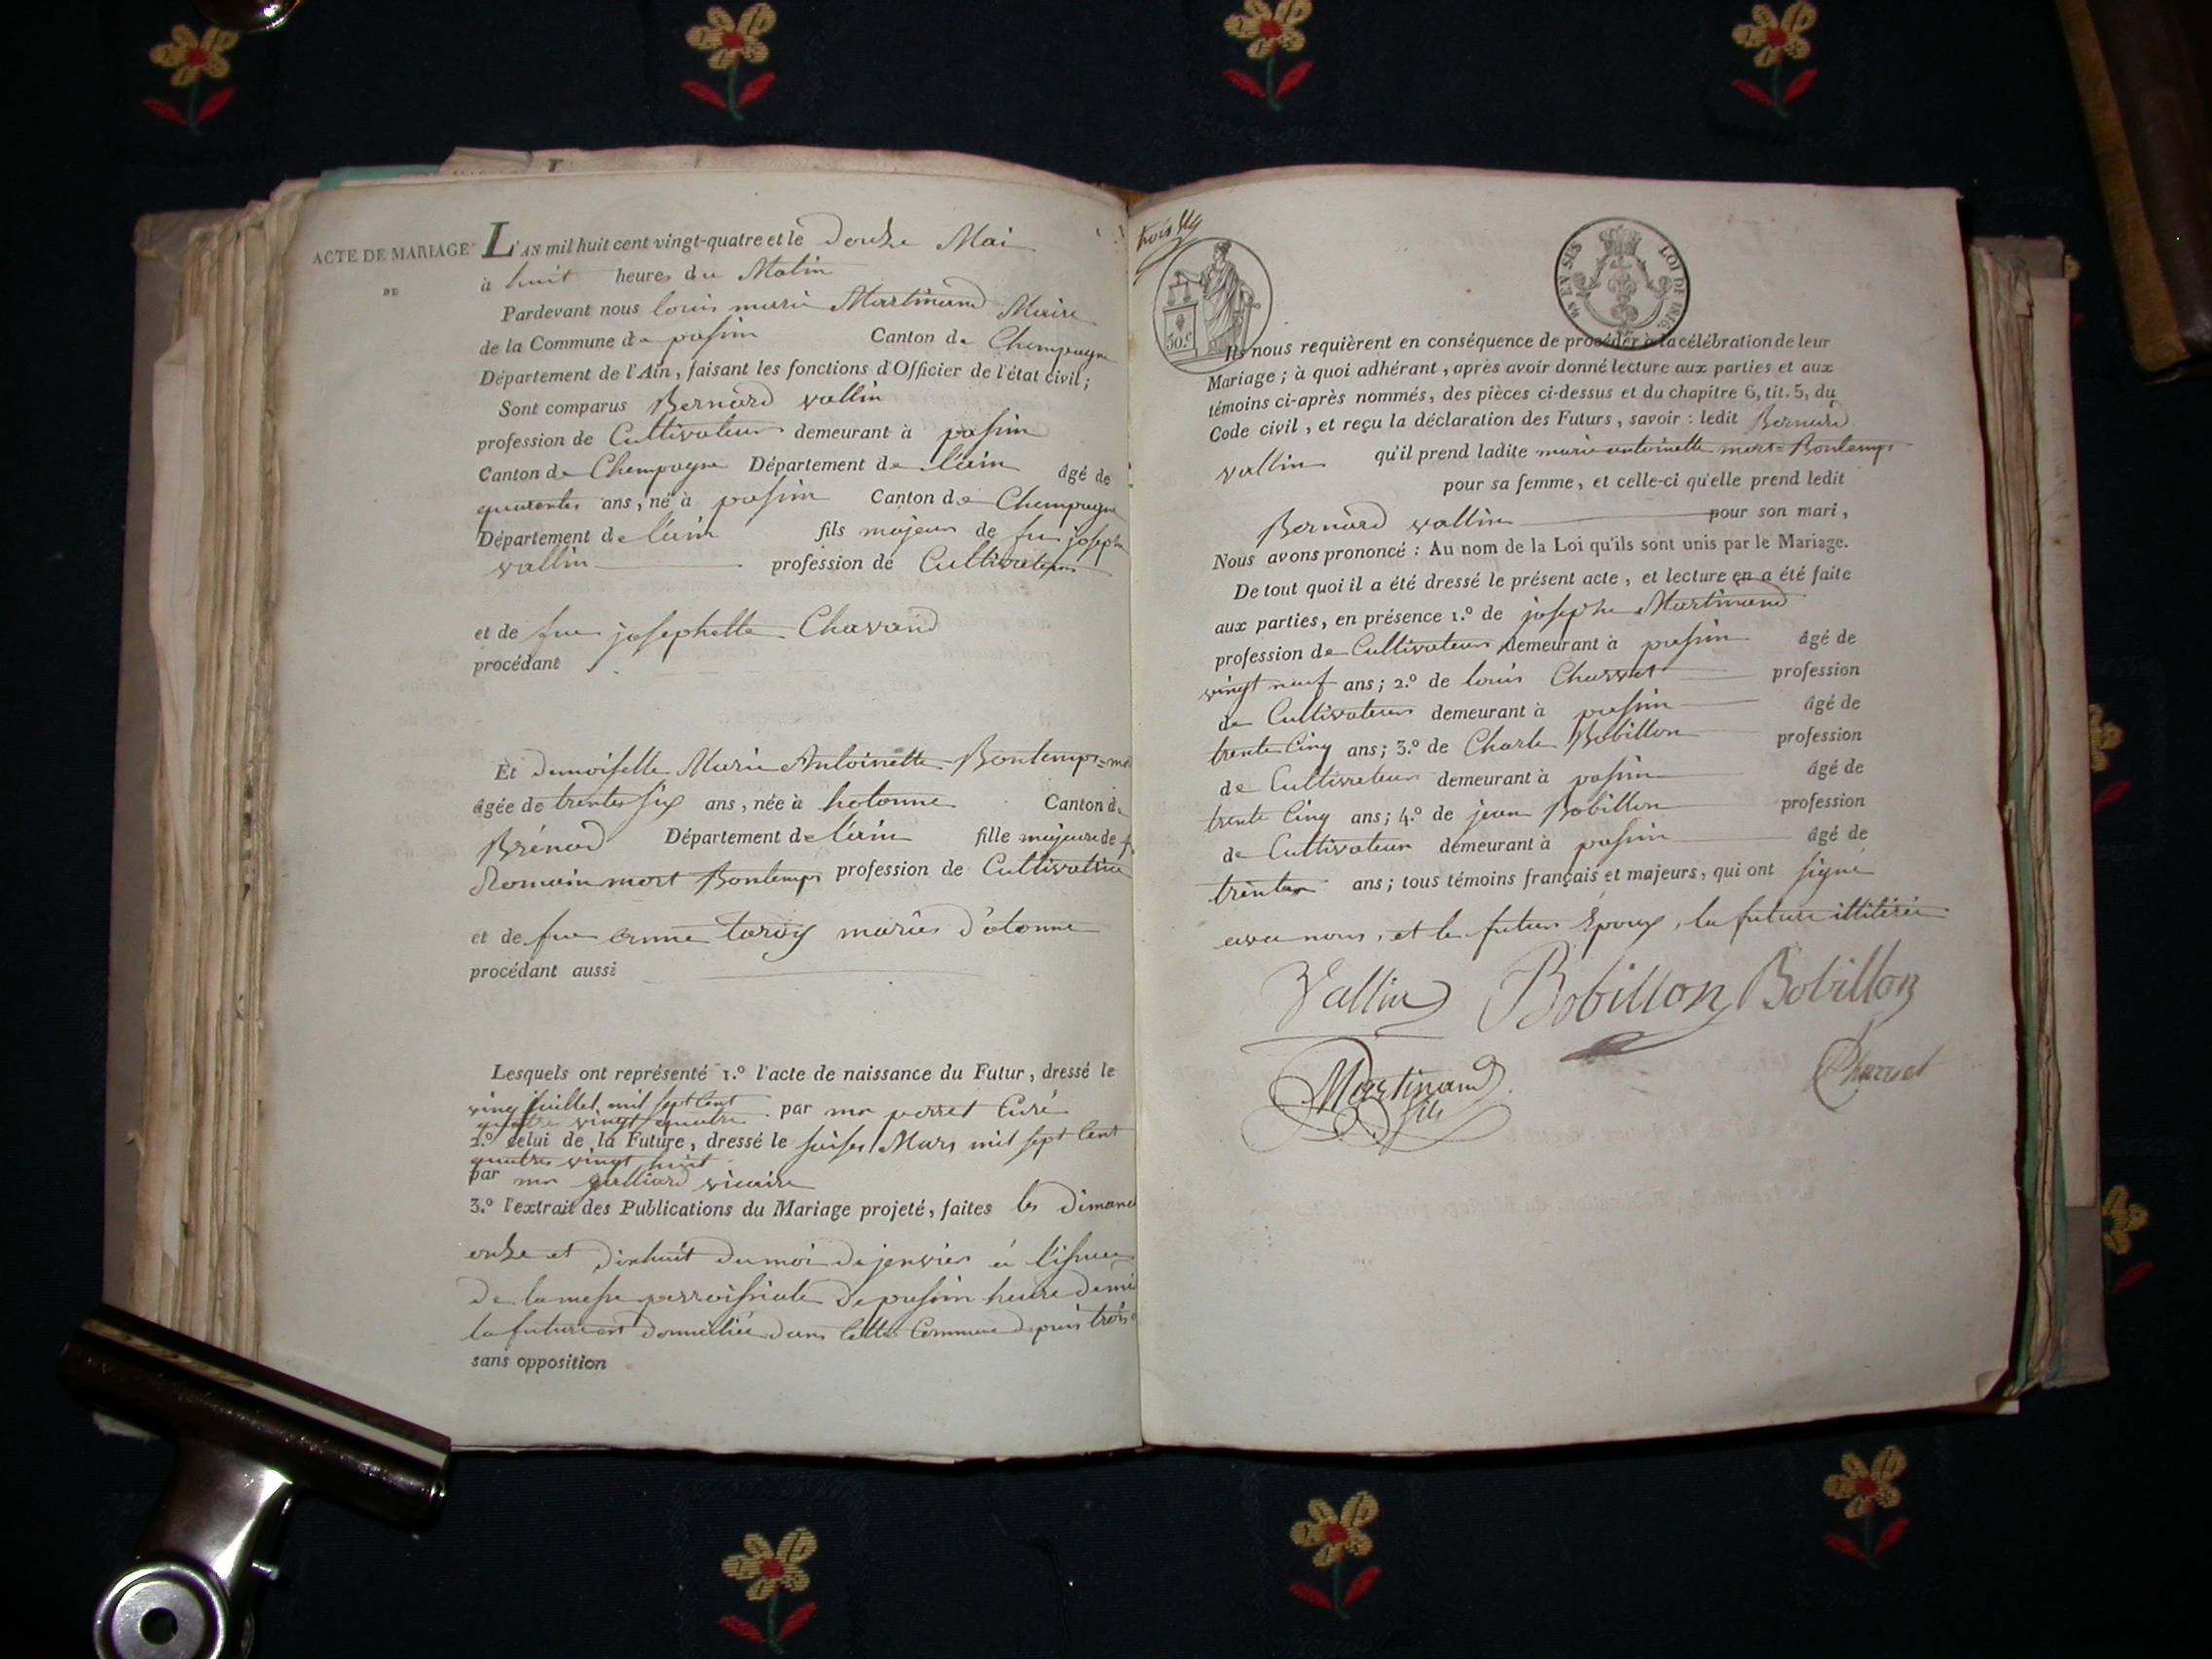 ACTE DE MARIAGE
DE
L'AN mil huit cent vingt-quatre et le douze Mai
à huit heures du Matin
Pardevant nous louis marie Martinand Maire
de la Commune de passin Canton de Champagne
Département de l'Ain, faisant les fonctions d'Officier de l'état civil;
Sont comparus Bernard vallin
profession de Cultivateur demeurant à passin
Canton de Champagne Département de l'ain âgé de
quarantes ans, né à passin Canton de Champagne
Département de l'ain fils majeur de feu joseph
vallin profession de Cultivateur
et de feue josephette Chavand
procédant
Et demoiselle Marie Antoinette Bontemps=
âgée de trentes six ans, née à hotonne Canton de
Brénod Département de l'ain fille majeure de
Romain mort Bontemps profession de Cultivatrice
et de feue anne tardy mariés d'otonne
procédant aussi
Lesquels ont représenté 1.° l'acte de naissance du Futur, dressé le
ving juillet mil sept cent
quatre vingt quatre par mr perret Curé
2.° celui de la Future, dressé le seises Mars mil sept cent
quatres vingt huit
par mr vicaire
3.° l'extrait des Publications du Mariage projeté, faites les dimanc
onze et dixhuit du moi de janvier à l'issue
de la messe parroissiale de passin heure de mi
la future est domiciliée dans cette Commune depuis trois
sans opposition
30.c
EN SUS LOI DE 1816
Ils nous requièrent en conséquence de procéder à la célébration de leur
Mariage; à quoi adhérant, après avoir donné lecture aux parties et aux
témoins ci-après nommés, des pièces ci-dessus et du chapitre 6, tit. 5, du
Code civil, et reçu la déclaration des Futurs, savoir: ledit Bernard
vallin qu'il prend ladite marie antoinette mort=Bontemps
pour sa femme, et celle-ci qu'elle prend ledit
Bernard vallin pour son mari,
Nous avons prononcé: Au nom de la Loi qu'ils sont unis par le Mariage.
De tout quoi il a été dressé le présent acte, et lecture en a été faite
aux parties, en présence 1.° de joseph Martinand
profession de Cultivateur demeurant à passin âgé de
vingt neuf ans; 2.° de louis Charvet profession
de Cultivateur demeurant à passin âgé de
trente Cinq ans; 3.° de Charle Bobillon profession
de Cultivateur demeurant à passin âgé de
trente Cinq ans; 4.° de jean Bobillon profession
de Cultivateur demeurant à passin âgé de
trente ans; tous témoins français et majeurs, qui ont signé
avec nous, et le futur Epoux, la future illitérée
Vallin Bobillon Bobillon
Martinand fils Charvet